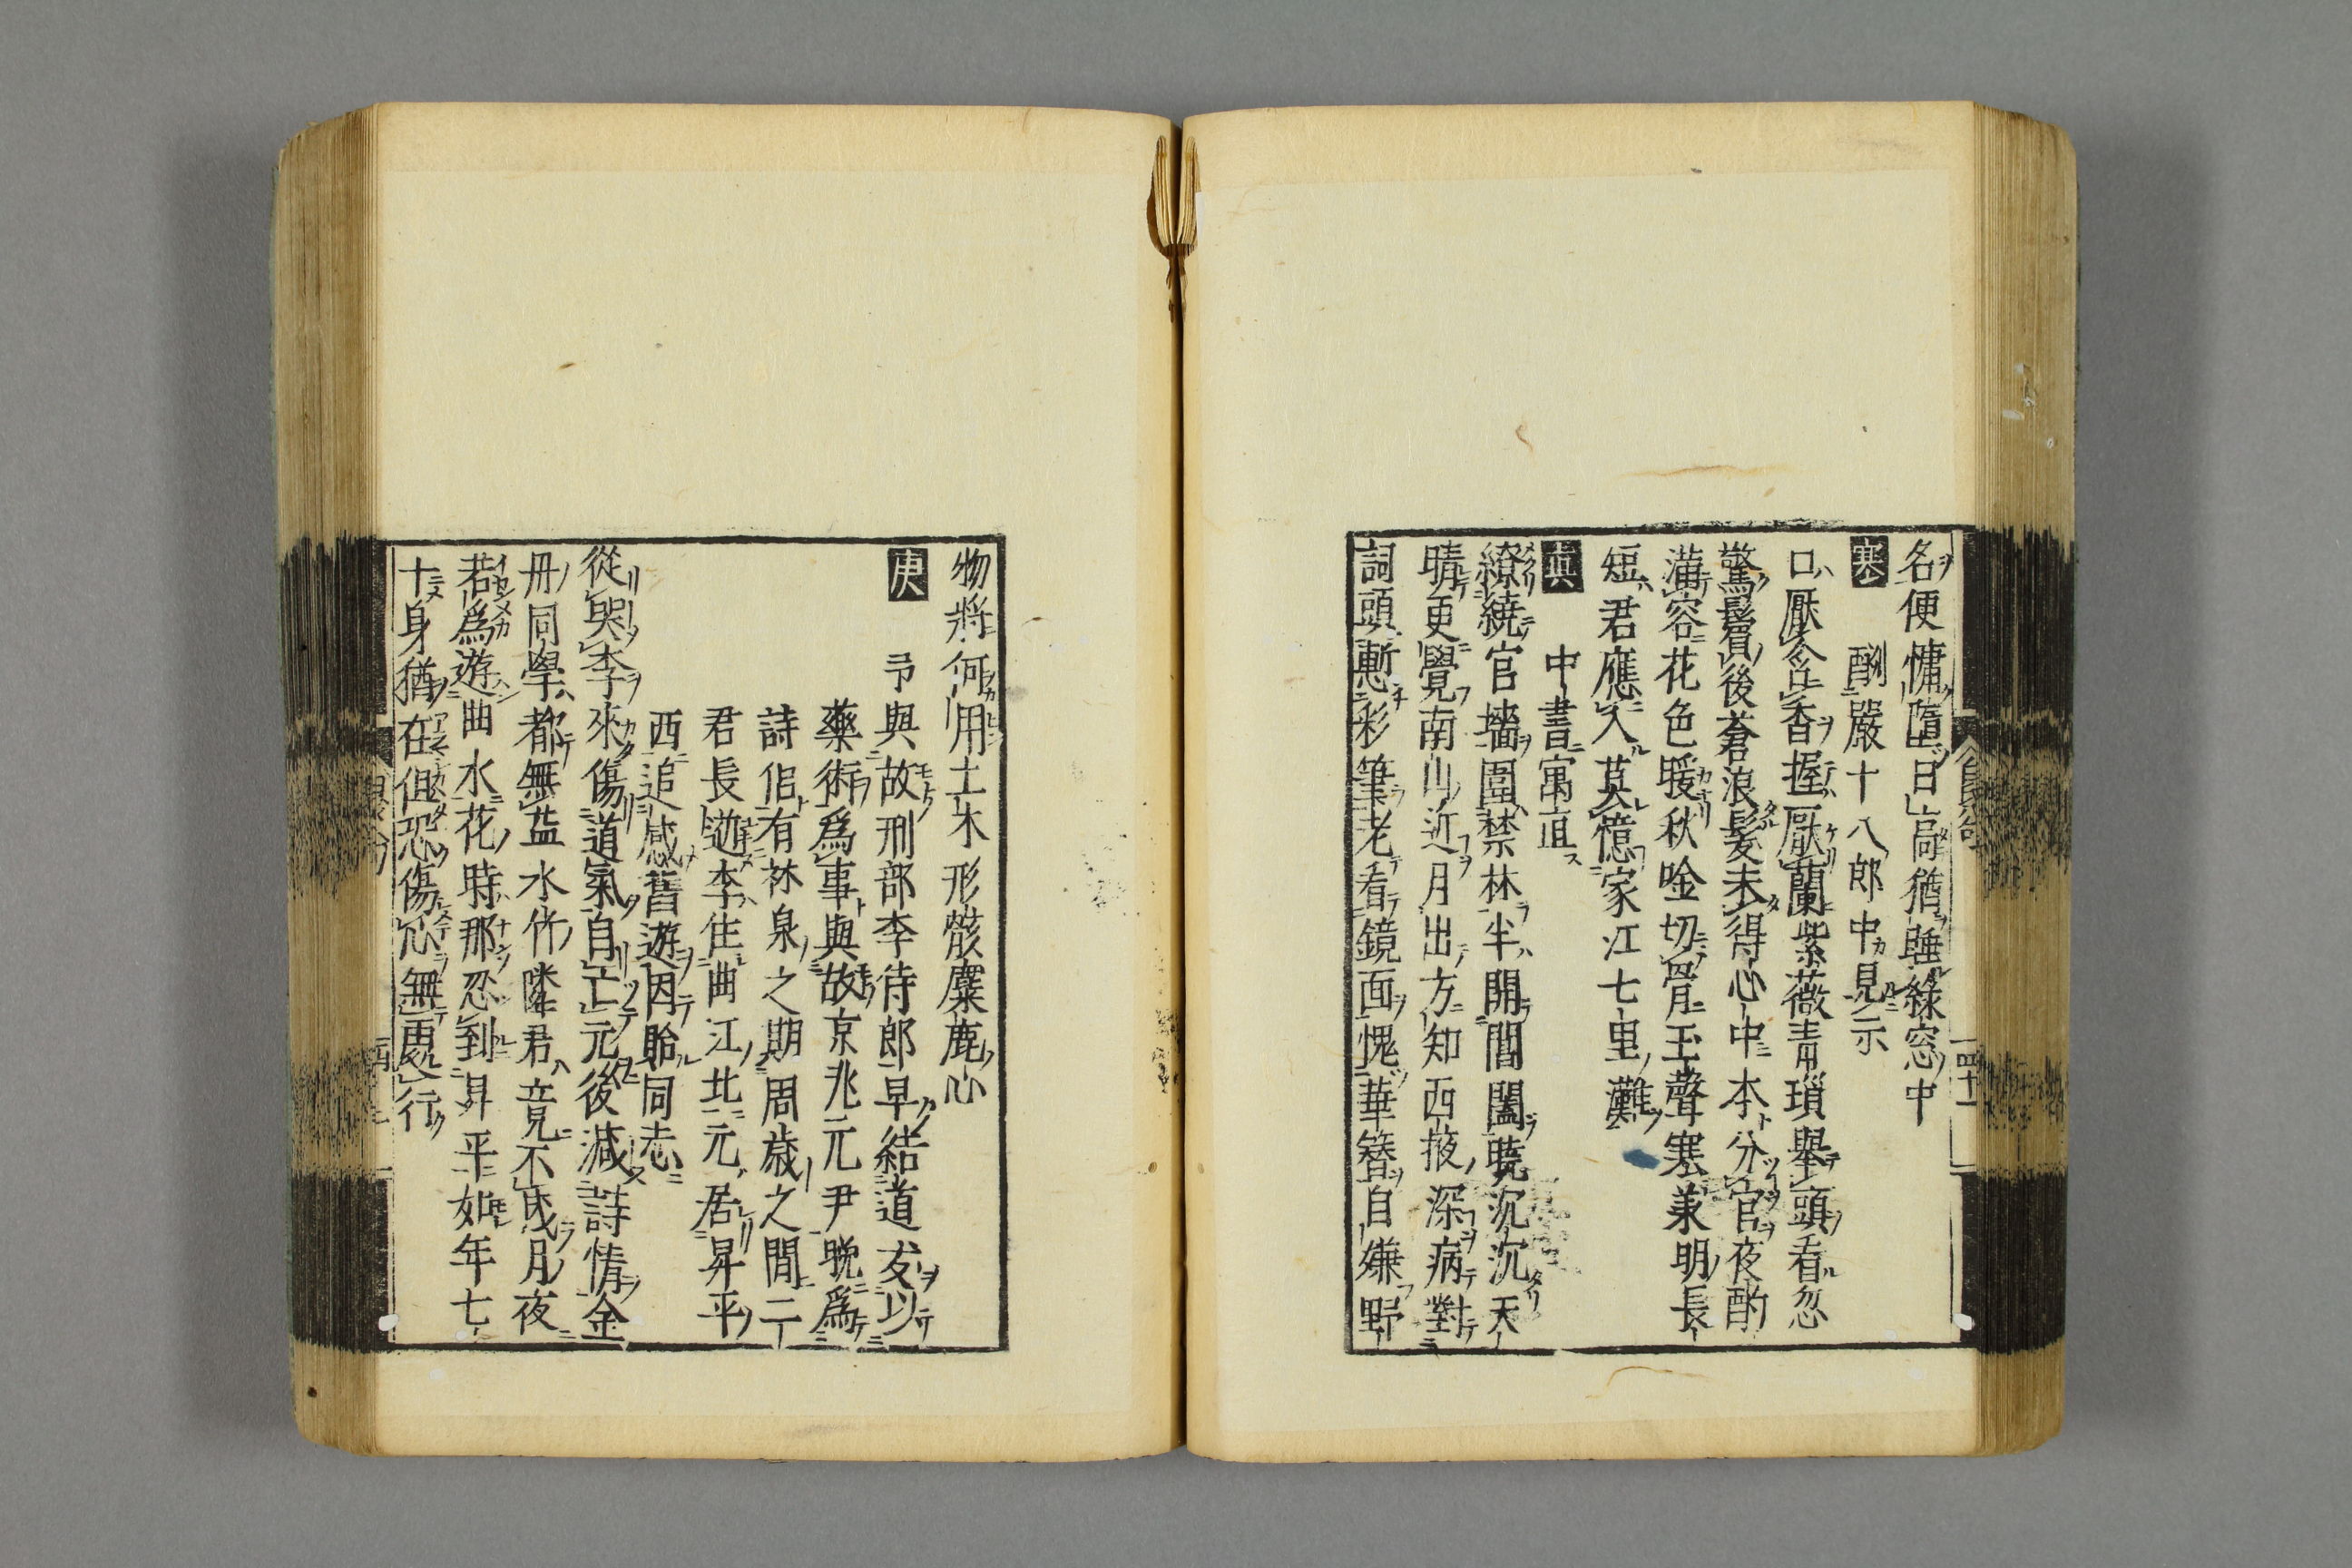 名便慵墮日高猶睡綠窓中
寒
酬嚴十八郎中見示
口厭含香握厭蘭紫薇青瑣擧頭看忽
驚鬢後蒼浪髮未得心中本分官夜酌
滿容花色暖秋吟切骨玉聲寒兼明長
短君應入莫憶家江七里灘
真
中書寓直
繚繞宮墻圍禁林半開閶闔曉沉沉天
晴更覺南山近月出方知西掖深病對
詞頭慙彩筆老看鏡面愧華簪自嫌野
物將何用土木形骸麋鹿心
庚
予與故刑部李侍郎早結道友以
藥術爲事與故京兆元尹晩爲
詩侶有林泉之期周歲之間二
君長逝李住曲江北元居昇平
西追感舊遊因貽同志
從哭李來傷道氣自亡元後減詩情金
丹同學都無益水竹隣君竟不成月夜
若爲遊曲水花時那忍到昇平如年七
十身猶在但恐傷心無處行